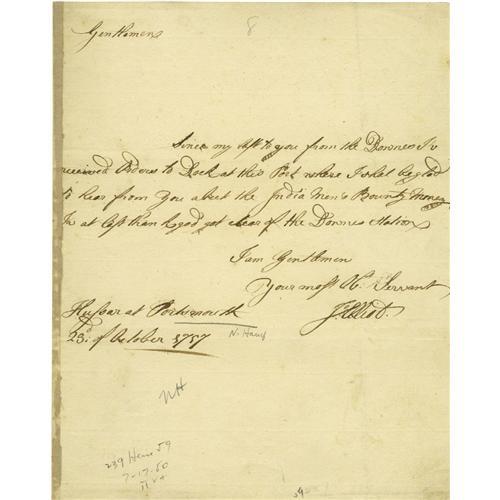 8
Gentlemen
Since my last to you from the Downes I've
received Orders to Dock at this Port where I shal be glad
to hear from You abect the India Men's Bounty Money
I'm at last thank god got clear of the Downes Station
I am Gentlemen
Your most Ob. Servant
J. Elliot.
Hussar at Portsmouth
23d. of October 1757
N. Hamp
NH
239 Henr 59
7-17-60